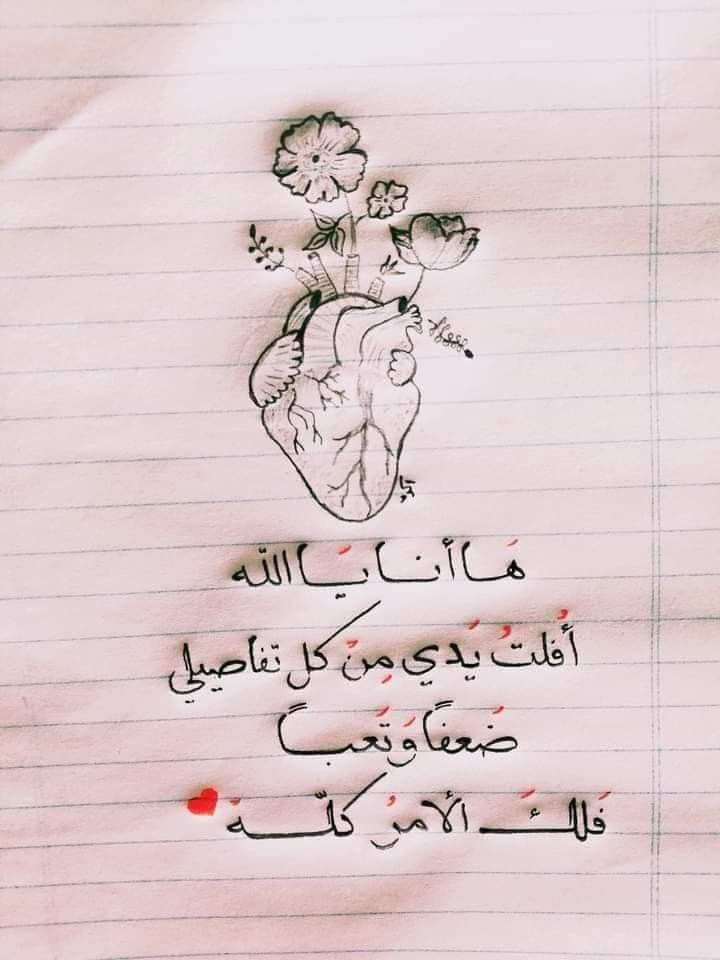 هَا أنا يَا الله
أُفلتُ يَدي مِنْ كل تفاصيلي
ضُعفاً وَ تَعباً
فَلكَ الأمرُ كلّهُ